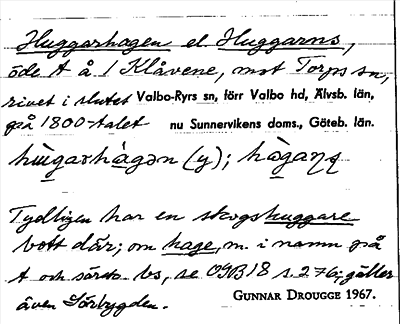 Huggarhagen el. Huggarns,
öde t å. 1 Klåvene, mot Torps sn,
rivet i slutet Valbo-Ryrs sn, förr Valbo hd, Älvsb. län,
på 1800-talet nu Sunnervikens doms., Göteb. län.
hùgarhàgən (y);
Tydligen har en skogshuggare
bott där; om hage, m. i namn på
t och särsk. bs, se OGB 18 s. 276; gäller
även Sörbygden.
GUNNAR DROUGGE 1967.